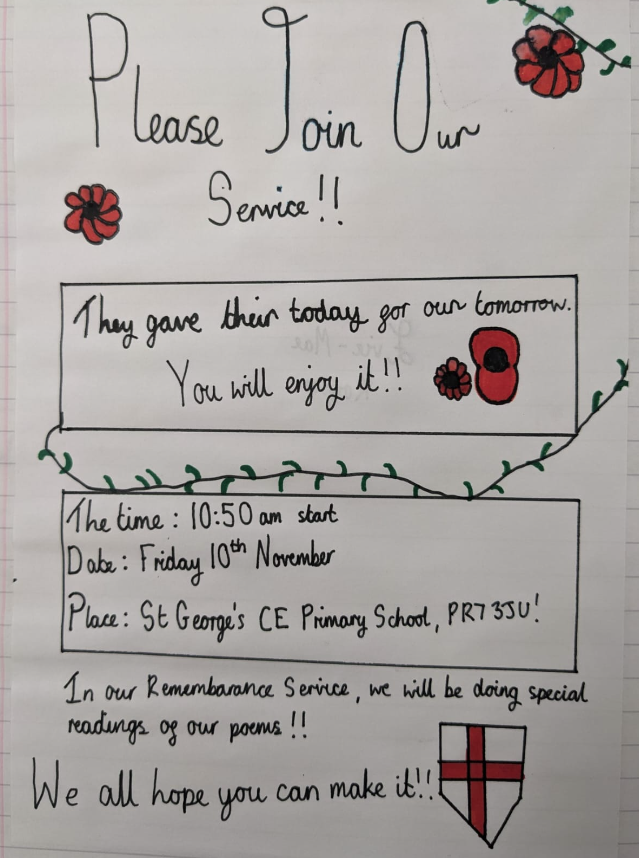 Please Join Our
Service!!
They gave their today for our tomorrow.
You will enjoy it!!
The time: 10:50 am start
Date: Friday 10th November
Place: St George's CE Primary School, PR7 3JU!
In our Remembarance Service, we will be doing special
readings of our poems!!
We all hope you can make it!!